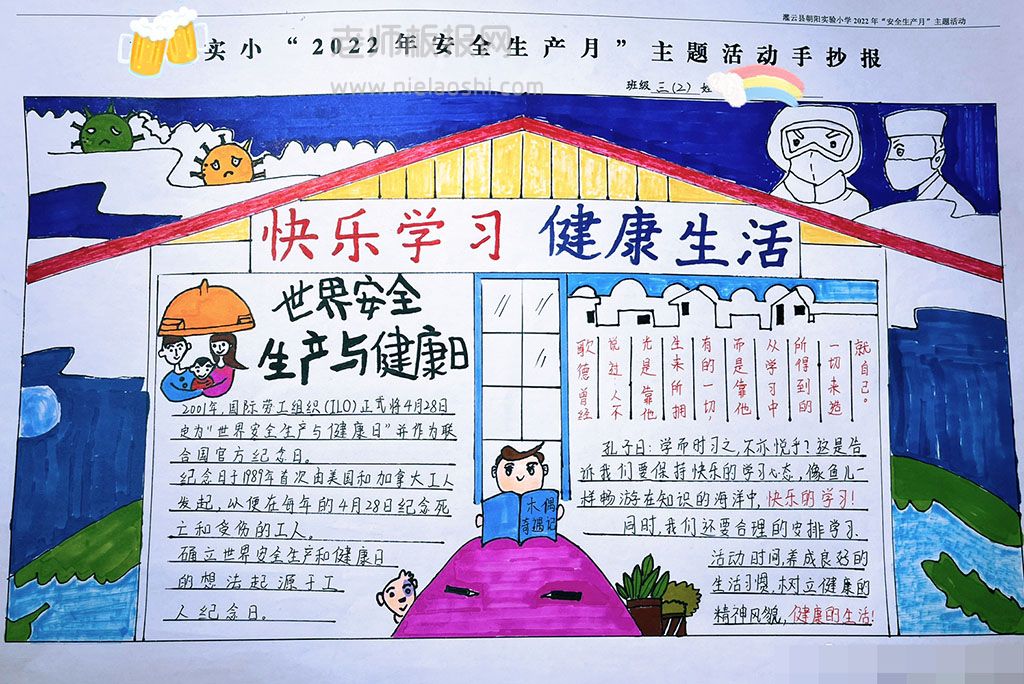 灌云县朝阳实验小学2022年“安全生产月”主题活动
实小“2022年安全生产月”主题活动手抄报
老师板报网
www.nielaoshi.com
班级 三(2) 姓
快乐学习 健康生活
世界安全
生产与健康日
2001年,国际劳工组织(ILO)正式将4月28日
定为“世界安全生产与健康日”并作为联
合国官方纪念日。
纪念日于1989年首次由美国和加拿大工人
发起,以便在每年的4月28日纪念死
亡和受伤的工人。
确立世界安全生产和健康日
的想法起源于工
人纪念日。
木偶
奇遇记
歌德曾经
说过:人不
光是靠他
生来所拥
有的一切,
而是靠他
从学习中
所得到的
一切来造
就自己。
孔子曰:学而时习之,不亦悦乎?这是告
诉我们要保持快乐的学习心态,像鱼儿一
样畅游在知识的海洋中,快乐的学习!
同时,我们还要合理的安排学习、
活动时间,养成良好的
生活习惯,树立健康的
精神风貌,健康的生活!